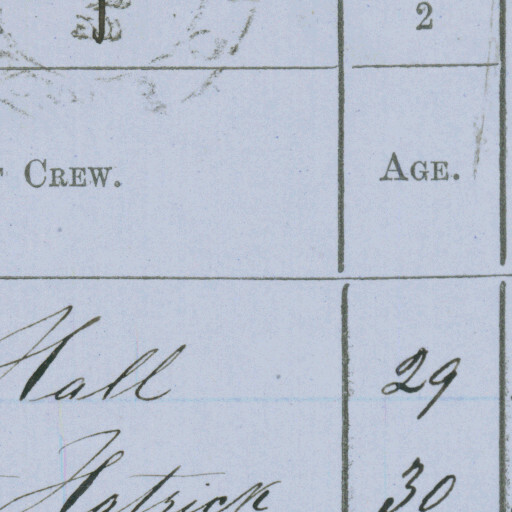 2
CREW. AGE.
Hall 29
Hatrick 30